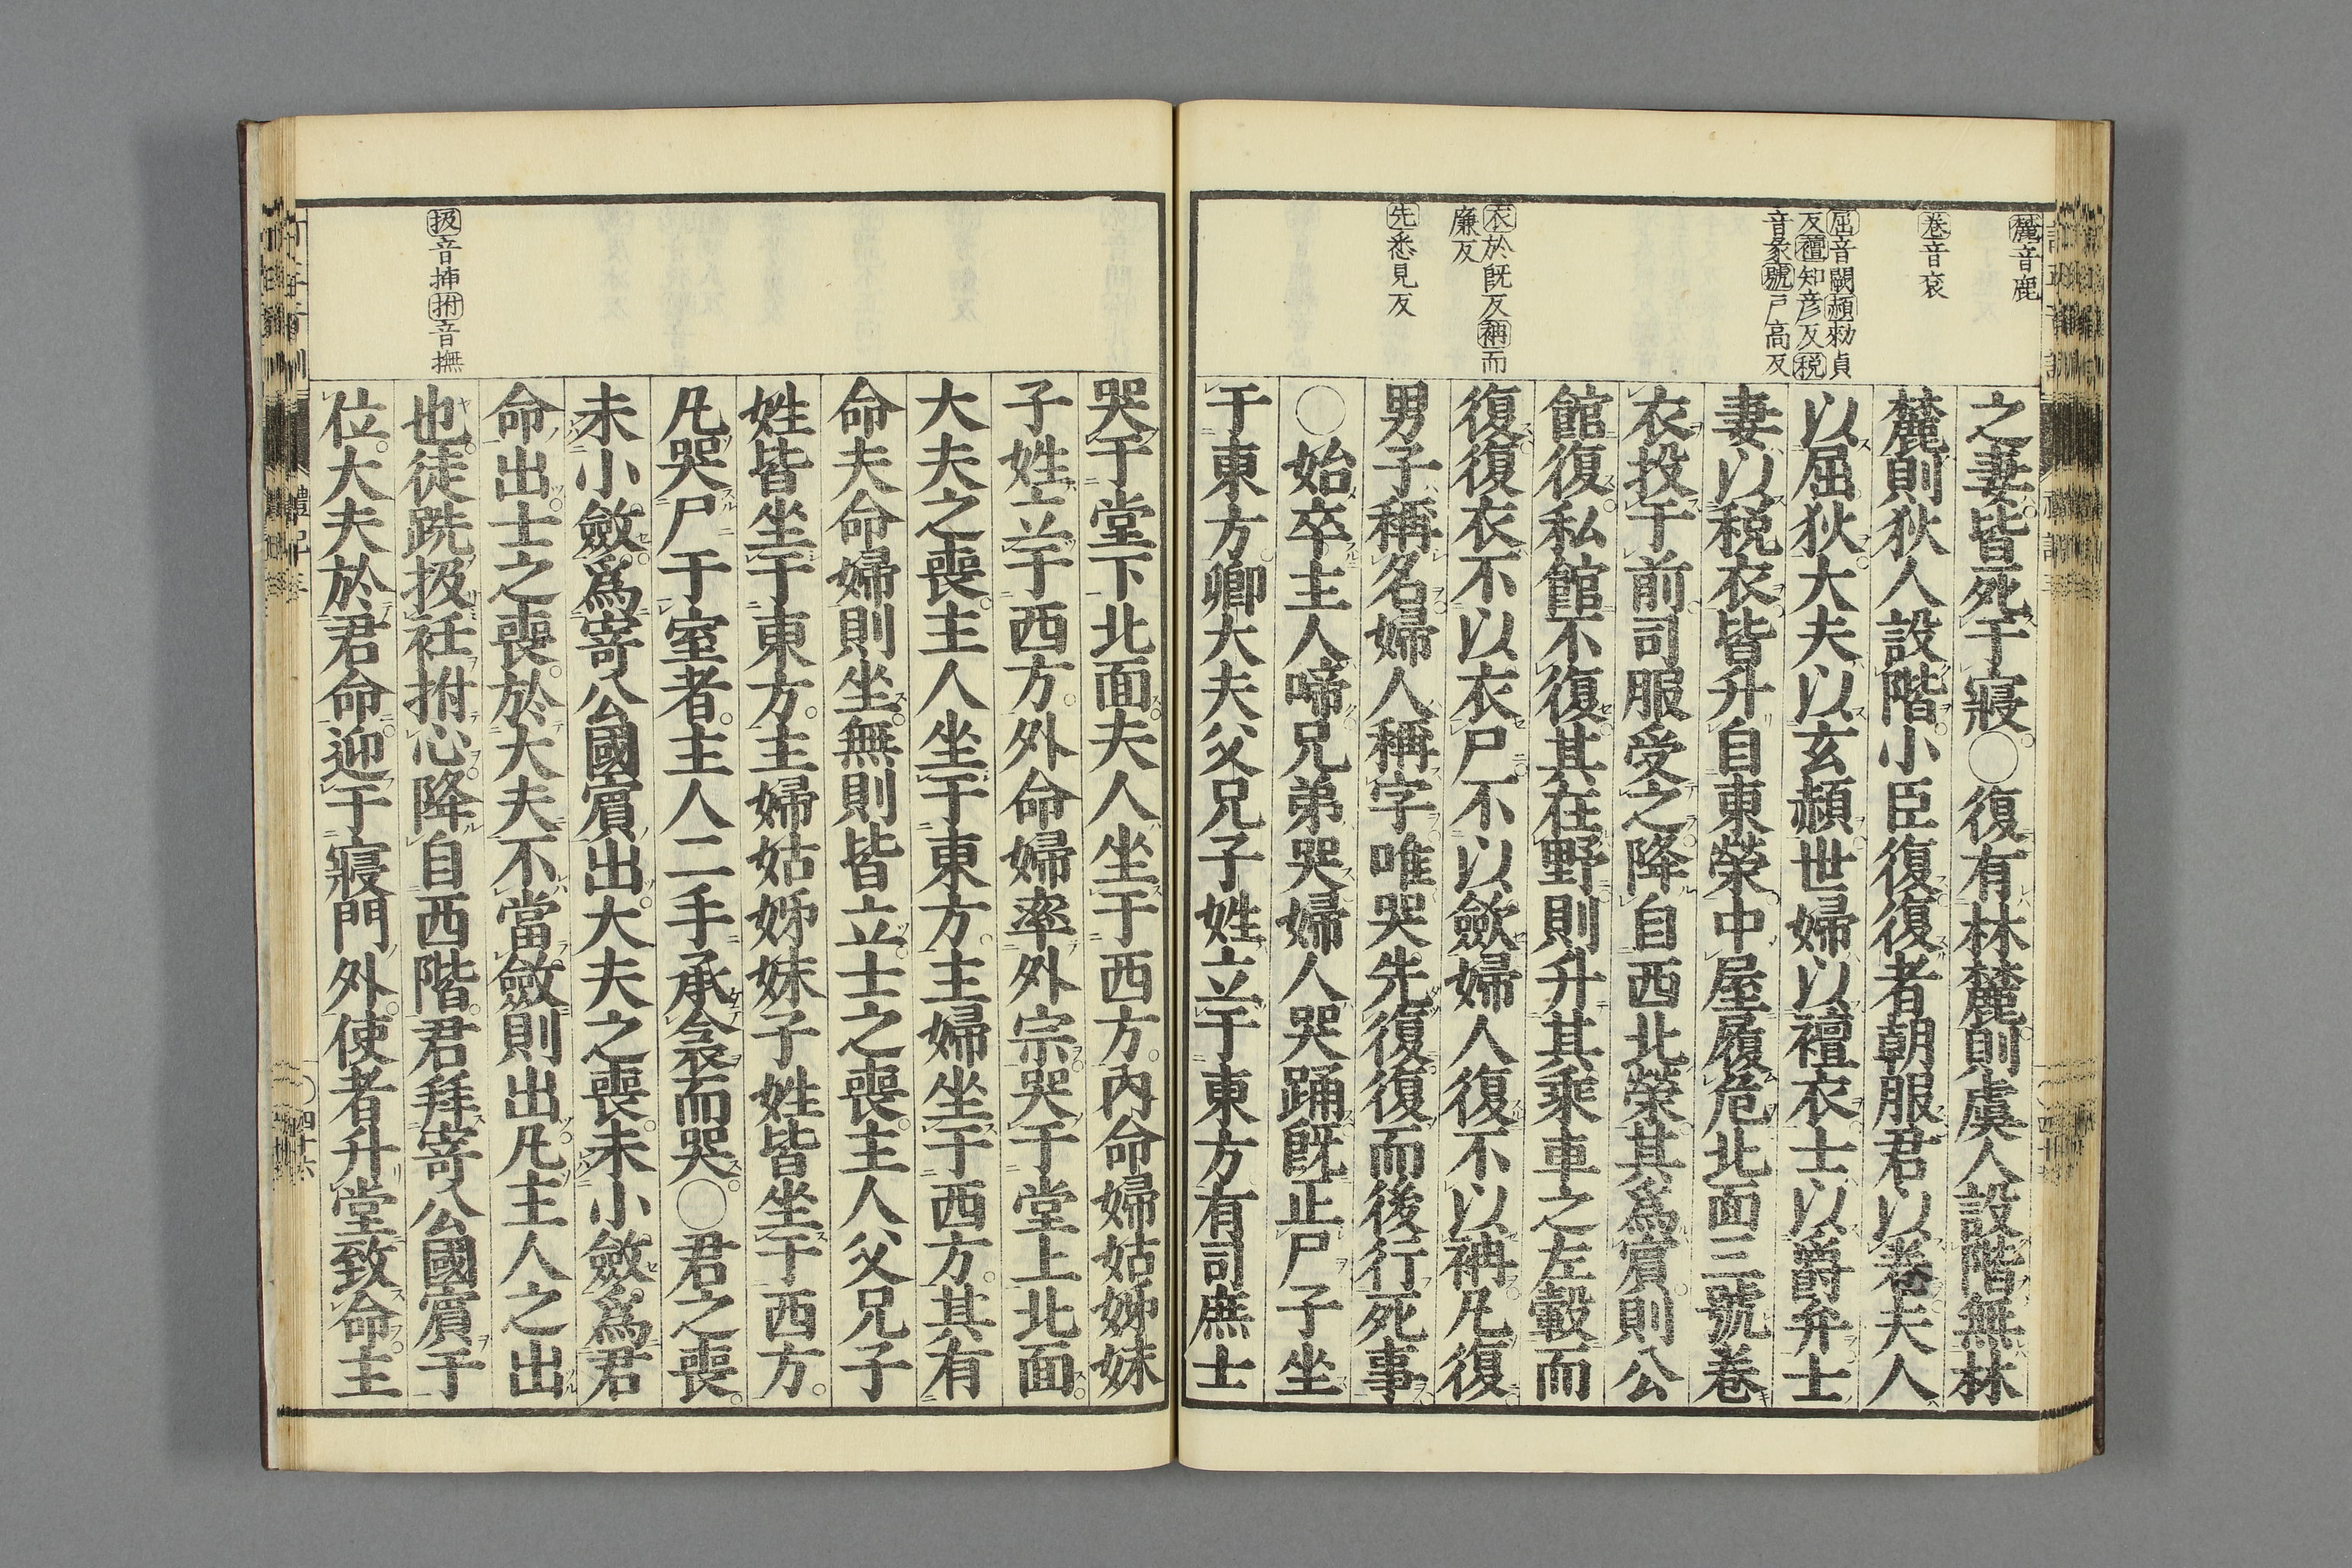 麓音鹿
卷音袞
屈音闕赬勑貞
反襢知彦反税
音彖號戸高反
衣於既反袡而
廉反
先悉見反
之妻皆死于寢○復有林麓則虞人設階無林
麓則狄人設階小臣復復者朝服君以卷夫人
以屈狄大夫以玄赬世婦以襢衣士以爵弁士
妻以税衣皆升自東榮中屋履危北面三號卷
衣投于前司服受之降自西北榮其爲賔則公
館復私館不復其在野則升其乘車之左轂而
復復衣不以衣尸不以斂婦人復不以袡凡復
男子稱名婦人稱字唯哭先復復而後行死事
○始卒主人啼兄弟哭婦人哭踊既正尸子坐
于東方卿大夫父兄子姓立于東方有司庶士
扱音挿拊音撫
哭于堂下北面夫人坐于西方內命婦姑姊妹
子姓立于西方外命婦率外宗哭于堂上北面
大夫之喪主人坐于東方主婦坐于西方其有
命夫命婦則坐無則皆立士之喪主人父兄子
姓皆坐于東方主婦姑姊妹子姓皆坐于西方
凡哭尸于室者主人二手承衾而哭○君之喪
未小斂爲寄公國賔出大夫之喪未小斂爲君
命出士之喪於大夫不當斂則出凡主人之出
也徒跣扱衽拊心降自西階君拜寄公國賔于
位大夫於君命迎于寢門外使者升堂致命主